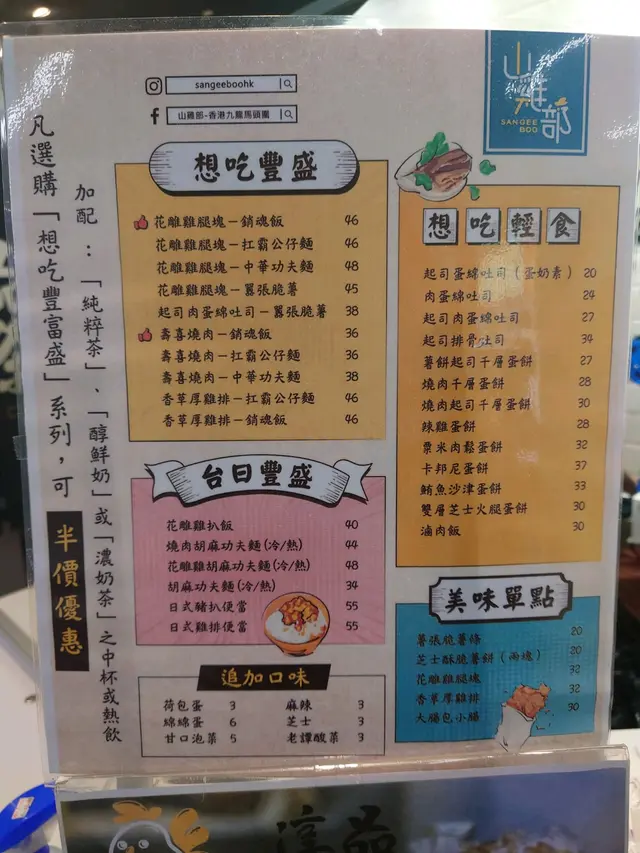 sangeeboohk
山雞部-香港九龍馬頭圍
山雞部
SANGEE BOO
凡選購「想吃豐富盛」系列,可半價優惠
加配:「純粹茶」、「醇鮮奶」或「濃奶茶」之中杯或熱飲
想吃豐盛
花雕雞腿塊-銷魂飯 46
花雕雞腿塊-扛霸公仔麵 46
花雕雞腿塊-中華功夫麵 48
花雕雞腿塊-囂張脆薯 45
起司肉蛋綿吐司-囂張脆薯 38
壽喜燒肉-銷魂飯 36
壽喜燒肉-扛霸公仔麵 36
壽喜燒肉-中華功夫麵 38
香草厚雞排-扛霸公仔麵 46
香草厚雞排-銷魂飯 46
台日豐盛
花雕雞扒飯 40
燒肉胡麻功夫麵(冷/熱) 44
花雕雞胡麻功夫麵(冷/熱) 48
胡麻功夫麵(冷/熱) 34
日式豬扒便當 55
日式雞排便當 55
追加口味
荷包蛋 3 麻辣 3
綿綿蛋 6 芝士 3
甘口泡菜 5 老譚酸菜 3
想吃輕食
起司蛋綿吐司(蛋奶素) 20
肉蛋綿吐司 24
起司肉蛋綿吐司 27
起司排骨吐司 34
薯餅起司千層蛋餅 27
燒肉千層蛋餅 28
燒肉起司千層蛋餅 30
辣雞蛋餅 28
粟米肉鬆蛋餅 32
卡邦尼蛋餅 37
鮪魚沙津蛋餅 33
雙層芝士火腿蛋餅 30
滷肉飯 30
美味單點
薯張脆薯條 20
芝士酥脆薯餅(兩塊) 20
花雕雞腿塊 32
香草厚雞排 32
大腸包小腸 30